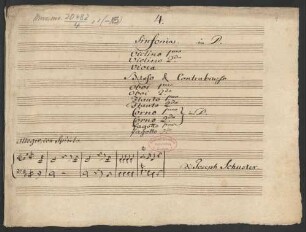 4.
Sinfonia in D.
Violino 1mo
Violino 2do
Viola
Basso & Contrabasso
Oboi 1mo
Oboi 2do
Flauto 1mo
Flauto 2do
Corno 1mo
Corno 2do in D.
Fagotto 1mo
Fagotto 2do
Allegro con Spirito
Joseph Schuster